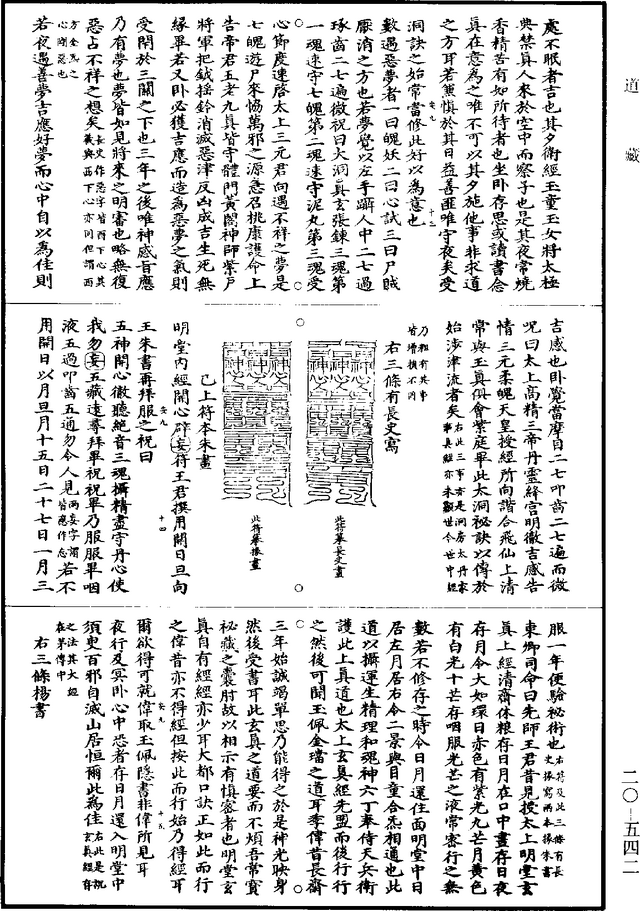 道藏
處不眠者吉也其夕衛經玉童玉女將太極
典禁真人來於空中而察子也是其夜常燒
香精苦有如所待者也坐卧存思或讀書念
真在意為之唯不可以其夕施他事非求道
之方耳若篤慎於其日益善匪唯守夜矣受
洞訣之始常當修此好以為意也
數遇惡夢者一曰魄妖二曰心試三曰尸賊
厭消之方也若夢覺以左手躡人中二七過
琢齒二七遍微祝曰大洞真玄張鍊三魂第
一魂速守七魄第二魂速守泥丸第三魂受
心節度速啓太上三元君向遇不祥之夢是
七魄遊尸來協萬邪之源急召桃康護命上
告帝君五老九真皆守體門黃闕神師紫戶
將軍把鉞揺鈴消滅惡津反凶成吉生死無
緣畢若又卧必獲吉應而造為惡夢之氣則
受閉於三關之下也三年之後唯神感旨應
乃有夢也夢皆如見將來之明審也略無復
惡占不祥之想矣長史作惡字皆酉下心其義與西下心亦同但謂西方金炁之心剛惡也
若夜遇善夢吉應好夢而心中自以為佳則
吉感也卧覺當摩目二七叩齒二七遍而微
呪曰太上高精三帝丹靈絳宮明徹吉感告
情三元柔魄天皇授經所向諧合飛仙上清
常與玉真俱會紫庭畢此太洞秘訣以傳於
始涉津流者矣右此三事亦是洞房太丹家事真經亦未顯世今世中經乃粗有其事皆增損不同
右三條有長史寫
此符摹長史畫
此符摹掾畫
已上符本朱畫
明堂內經開心辟妄符王君撰用開日旦向
王朱書再拜服之祝曰
五神開心徹聽絕音三魂攝精盡守丹心使
我勿妄五藏遠尋拜畢祝祝畢乃服服畢咽
液五過叩齒五通勿令人見兩妄字謂皆應作忘若不
用開日以月旦月十五日二十七日一月三
服一年便驗秘術也右符及此三條有長史掾寫兩本掾朱書
東鄉司命曰先師王君昔見授太上明堂玄
真上經清齋休粮存日月在口中晝存日夜
存月令大如環日赤色有紫光九芒月黃色
有白光十芒存咽服光芒之液常密行之無
數若不修存之時令日月還住面明堂中日
居左月居右令二景與目童合炁相通也此
道以攝運生精理和魂神六丁奉侍天兵衛
護此上真道也太上玄真經先盟而後行行
之然後可聞玉佩金璫之道耳李偉昔長齋
三年始誠竭單思乃能得之於是神光映身
然後受書耳此玄真之道要而不煩吾常寳
秘藏之囊肘故以相示有慎密者也明堂玄
真自有經經亦少耳大都口訣正如此而行
之偉昔亦不得經但按此而行始乃得經耳
爾欲得可就偉取玉佩隱書非偉所見耳
夜行及冥卧心中恐者存日月還入明堂中
須臾百邪自滅山居恒爾此為佳右此是說玄真經存之法其大經在茅傳中
右三條楊書
二〇-五四二